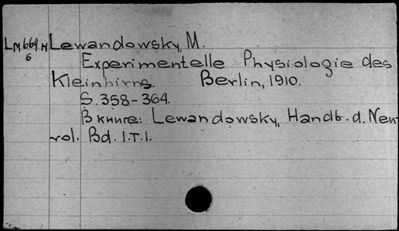 LM 664 M Lewandowsky, M.
6 Experimentelle Physiologie des
Kleinhirns. Berlin, 1910.
S. 358-364.
В книге: Lewandowsky, Handb. d. Neu
rol. Bd. I. T. I.